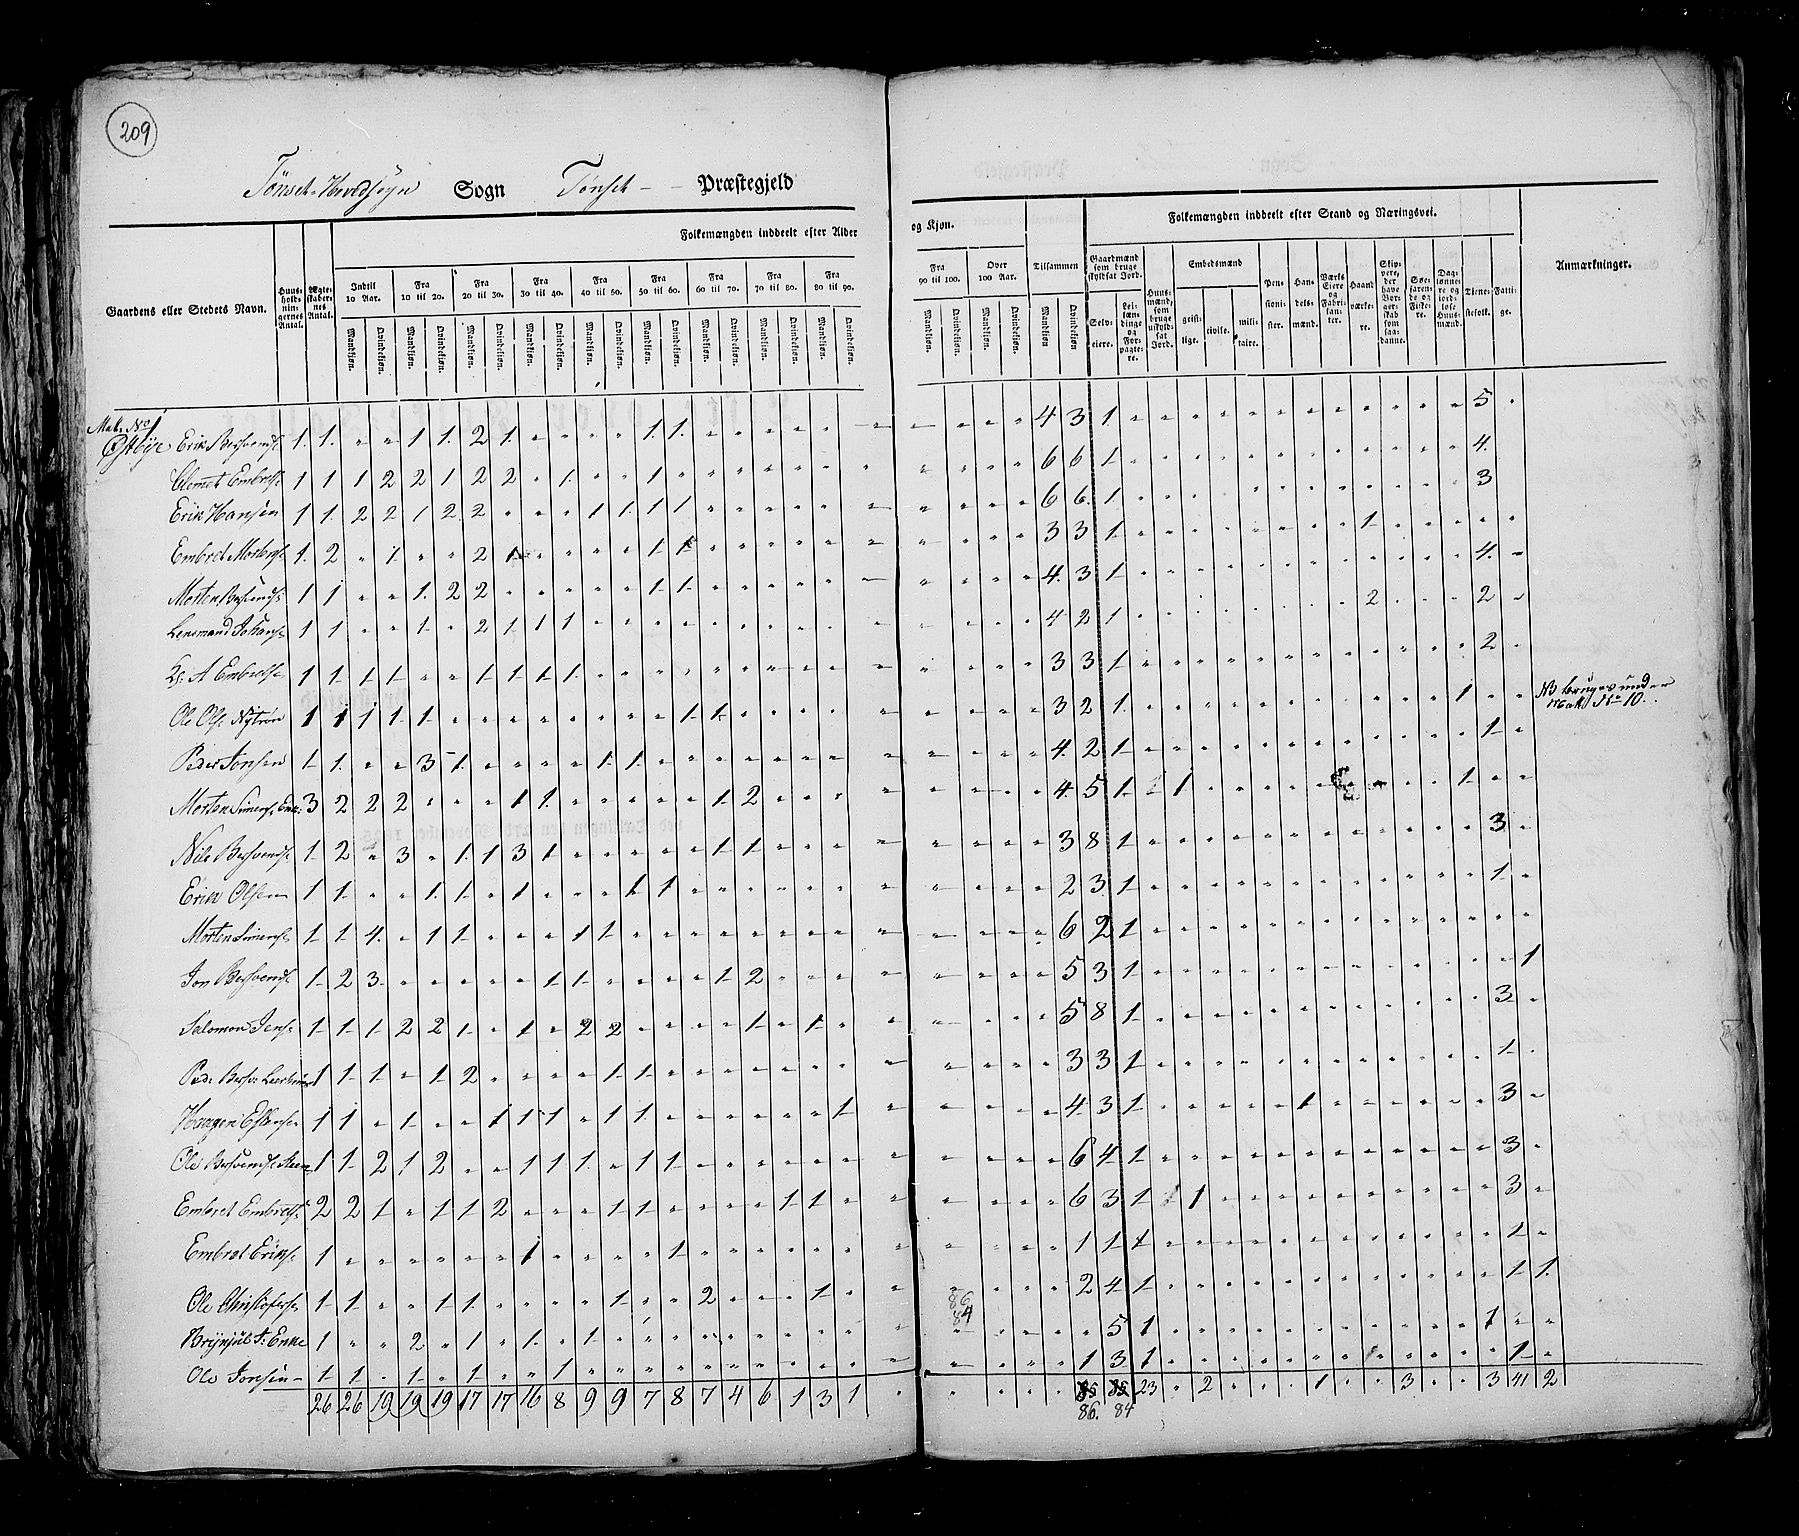 209
Tönset Hovedsogn Sogn Tönset Præstegjeld
Folkemængden inddeelt efter Alder og Kjøn.
Folkemængden inddeelt efter Stand og Næringsvei.
Gaardens eller Stedets Navn.
Huusholdningernes Antal.
Ægteskabernes Antal.
Indtil 10 Aar.
Fra 10 til 20.
Fra 20 til 30.
Fra 30 til 40.
Fra 40 til 50.
Fra 50 til 60.
Fra 60 til 70.
Fra 70 til 80.
Fra 80 til 90.
Fra 90 til 100.
Over 100 Aar.
Tilsammen
Mandkjøn. Qvindekjøn.
Gaardmænd som bruge skyldsat Jord.
Selveiere.
Leilændinge og Forpagtere.
Huusmænd, som bruge uskyldsat Jord.
Embedsmænd
geistlige. civile. militaire.
Pensionister.
Handelsmænd.
Værks Eiere og Fabrikanter.
Haandværkere.
Skippere, der have Borgerskab som saadanne.
Søefarende og Fiskere.
Daglønnere og jordløse Huusmænd.
Tjenestefolk.
Fattige.
Anmærkninger.
Mat. No 1
Østbye Erik Bersvends. 1 1 " " 1 1 2 1 " " " " 1 1 4 3 1 5
Clemet Embrets. 1 1 1 2 2 1 2 2 " 1 " " 1 6 6 1 4
Erik Hansen 1 1 2 2 1 2 2 " " " 1 1 1 1 6 6 1 3
Embret Mortens. 1 2 " 1 " " 2 1 " " " " 1 1 3 3 1 1
Morten Bersvends. 1 1 " " 1 2 2 " " " " " 1 1 4 3 1 4
Lensmand Johans. 1 1 " " 1 " 2 1 1 1 4 2 1 2 2
A Embrets. 1 1 1 1 " " 1 1 1 1 3 3 1 2
Ole Ols. Nytrøn 1 1 1 1 1 " " " " " " " 1 1 3 2 1 1 NB bruges under Mat. No 10.
Peder Jonsen 1 1 " " 3 1 " " " " 1 1 4 2 1 1
Morten Simens. Enke 3 2 2 2 " " " 1 1 " " " " " 1 2 4 5 1 1 1
Nils Bersvends. 1 2 " 3 " 1 1 3 1 " " " " " 1 1 3 8 1 3
Erik Olsen 1 1 " " 1 1 " 1 " " " 1 1 2 3 1 1
Morten Simens. 1 1 4 " 1 1 " " " 1 1 6 2 1
Jon Bersvends. 1 2 3 " " " " " 1 1 " " " " 1 2 5 3 1 1
Salomon Jens. 1 1 1 2 2 1 " 1 " 2 2 " " " " 1 " 1 5 8 1 3
Ped. Bersv. 1 1 1 " 1 2 " " " " 1 1 3 3 1 1
Haagen Estens. 1 1 " 1 " " 1 1 1 " 1 1 " " " " " " 1 4 3 1 1 3
Ole Bersvends. 1 1 2 1 2 " " 1 1 1 " 1 1 6 4 1 3
Embret Embrets. 2 2 1 " 1 1 2 " " " 1 1 " " " " 1 1 6 3 1 1 3
Embret Eriks. 1 " " " " " " 1 " " " " 1 1 1 1 1
Ole Christofers. 1 1 " " 1 1 " " " " 1 " " 2 " " " 1 2 4 1 1 1
Brynjul J. Enke 1 " " 2 " 1 " 1 " 1 " 5 1 1
Ole Jonsen 1 1 " 1 " 1 " " 1 1 3 1 1
26 26 19 19 19 17 17 16 8 9 9 7 8 7 4 6 1 3 1 85 85 23 " 2 1 3 3 41 2
86. 84
86
84